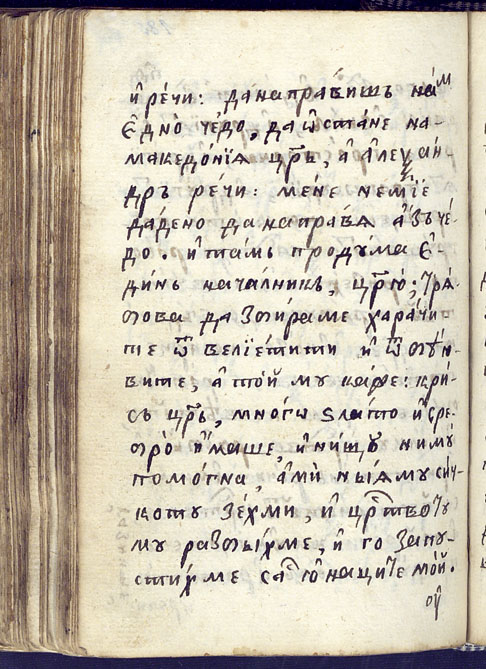 и҆ рѐчи: да направишъ на́м
є҆дно̀ че́до, да ѡ҆ста́не на-
македо́нїѧ цр҃ь, а҆ а҆леѯа́н-
дръ ре́чи: ме́не не мѝ е
да́дено да напра́вѧ а҆́зъ че́-
до. и҆ та́мъ проду́ма є҆-
ди́нъ нача́лникъ, цр҃ю; трѧ́-
бова да збира́ме хара́чи-
те ѿ велїе́тити и҆ ѿ
вите, а҆ то́й му ка́же: кри́-
съ цр҃ь, мно́гѡ ѕла́то и҆ сре-
бро̀ и҆́маше, и҆ ни́щѡ ниму̀
помо́гна, а҆ мѝ ны́ѧ му си́ч-
кото зе́хми, и҆ цр҃тво́то
му разби́хме, и҆ го запу-
сти́хме са́бїю на́щите мо́й.
ѹ҆